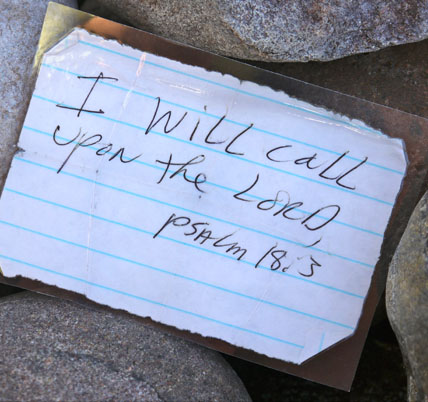 I will call
upon the LORD,
PSALM 18:3